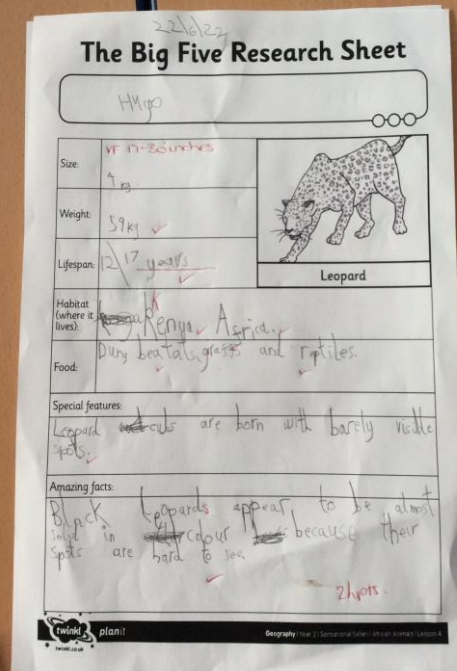 22/6/22
The Big Five Research Sheet
Hugo
Size:
VF 17-36 inches
4 kg
Weight:
59kg
Lifespan:
12\17 years
Leopard
Habitat
(where it
lives):
Kenya Africa.
Food:
Dung beatals, grass and reptiles.
Special features:
Leopard cubs are born with barely visible
spots.
Amazing facts:
Black Leopards appear to be almost
solid in colour because their
spots are hard to see.
2hpts.
twinkl planit
twinkl.co.uk
Geography | Year 2 | Sensational Safari | African Animals | Lesson 4